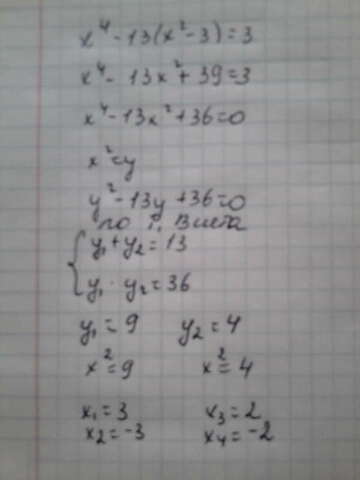 x⁴-13(x²-3)=3
x⁴-13x²+39=3
x⁴-13x²+36=0
x²=y
y²-13y+36=0
по т. Виета
{ y₁+y₂=13
y₁·y₂=36
y₁=9 y₂=4
x²=9 x²=4
x₁=3 x₃=2
x₂=-3 x₄=-2